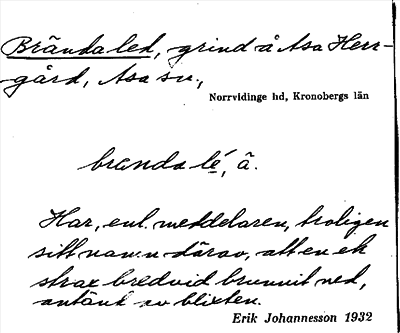 Brända led, grind å Asa Herr-
gård, Asa sn.,
Norrvidinge hd, Kronobergs län
branda lé, ā.
Har, enl. meddelaren, troligen
sitt namn därav, att en ek
strax bredvid brunnit ned,
antänd av blixten.
Erik Johannesson 1932